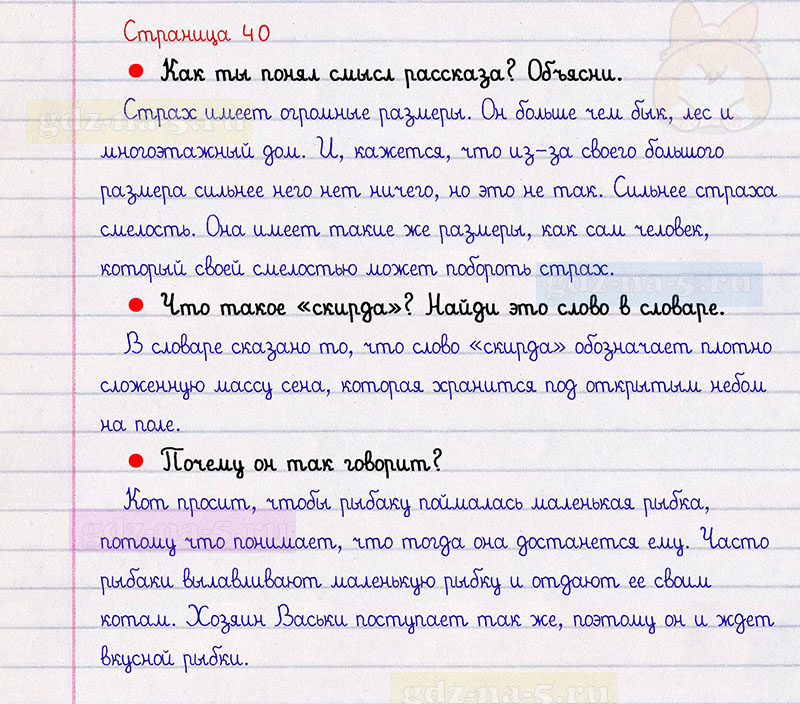 Страница 40
Как ты понял смысл рассказа? Объясни.
Страх имеет огромные размеры. Он больше чем бык, лес и
многоэтажный дом. И, кажется, что из-за своего большого
размера сильнее него нет ничего, но это не так. Сильнее страха
смелость. Она имеет такие же размеры, как сам человек,
который своей смелостью может побороть страх.
Что такое «скирда»? Найди это слово в словаре.
В словаре сказано то, что слово «скирда» обозначает плотно
сложенную массу сена, которая хранится под открытым небом
на поле.
Почему он так говорит?
Кот просит, чтобы рыбаку поймалась маленькая рыбка,
потому что понимает, что тогда она достанется ему. Часто
рыбаки вылавливают маленькую рыбку и отдают ее своим
котам. Хозяин Васьки поступает так же, поэтому он и ждет
вкусной рыбки.
gdz-na-5.ru
gdz-na-5.ru
gdz-na-5.ru
gdz-na-5.ru